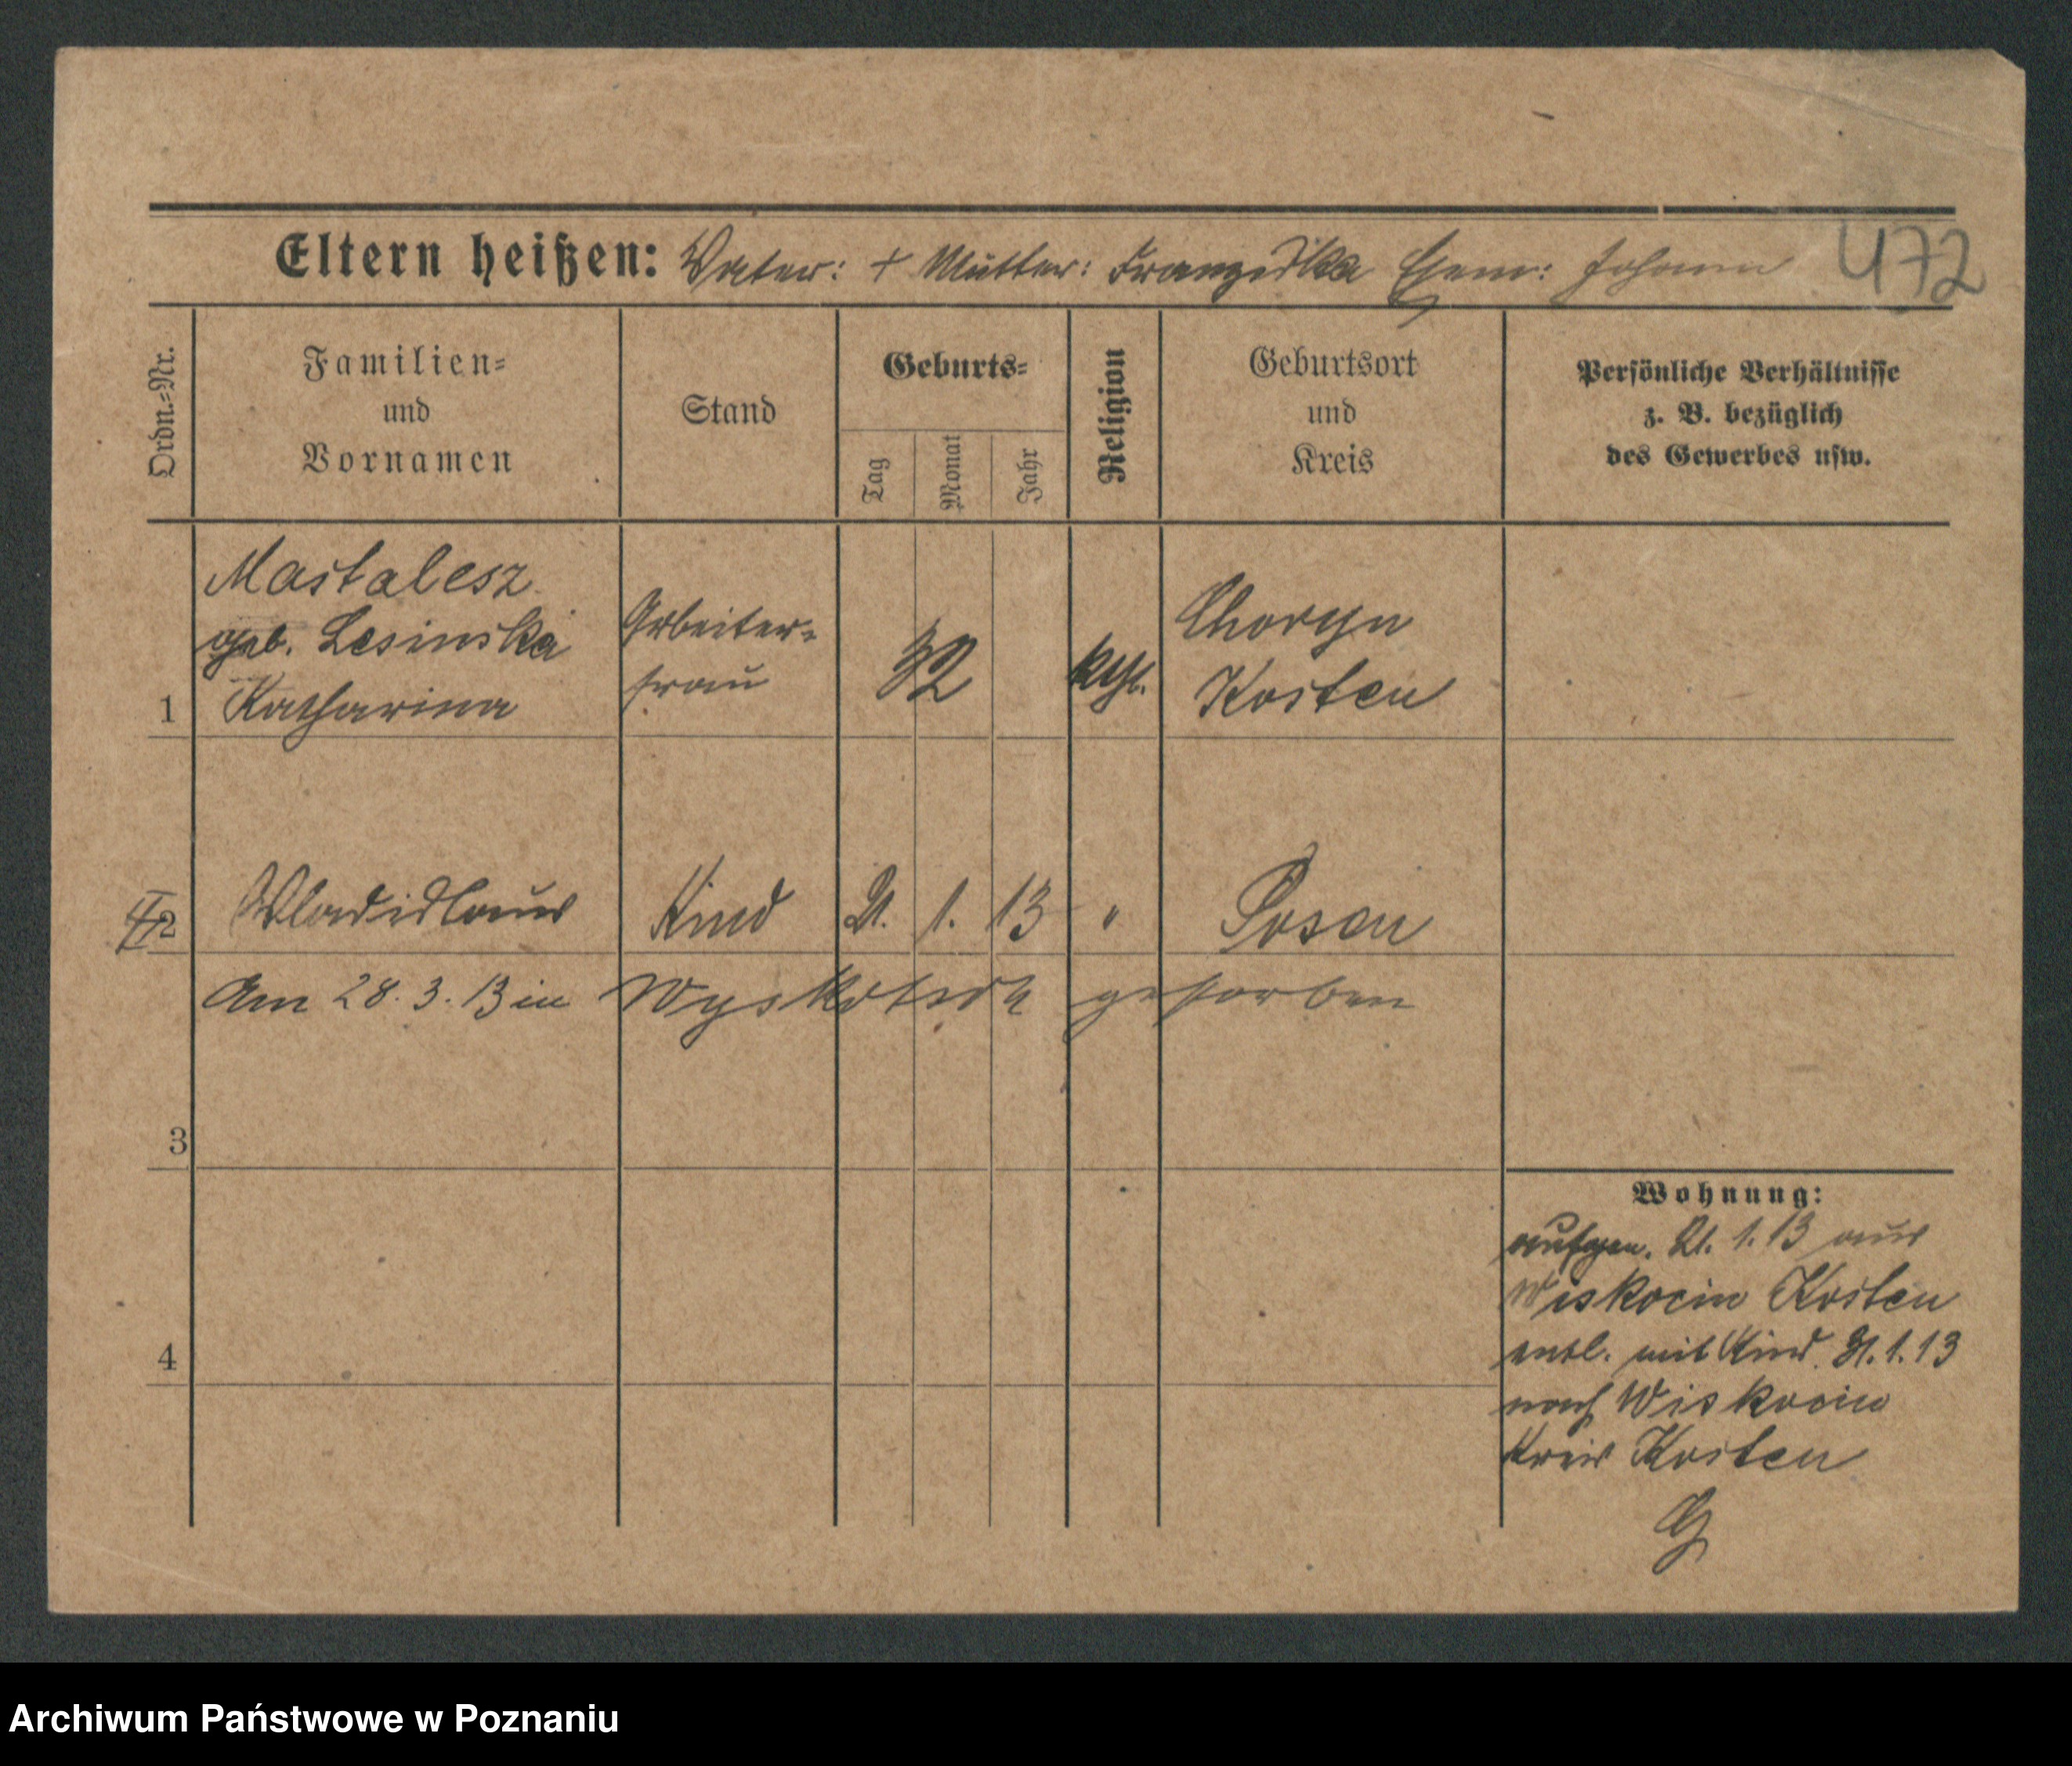 Eltern heißen: Vater: + Mutter: Franziska Ehem: Johann 472
Ordn.-Nr.
Familien=
und
Vornamen
Stand
Geburts=
Tag
Monat
Jahr
Religion
Geburtsort
und
Kreis
Persönliche Verhältnisse
z. B. bezüglich
des Gewerbes usw.
1
Mastalesz
geb. Lesinska
Katharina
Arbeiter=
frau
32
kth.
Choryn
Kosten
2
Wladislaus Kind 21. 1. 13 " Posen
Am 28. 3. 13 in Wyskotsch gestorben
3
4
Wohnung:
aufgen. 21. 1. 13 aus
Wiskocin Kosten
entl. mit Kind 31. 1. 13
nach Wiskocin
Kreis Kosten
G
Archiwum Państwowe w Poznaniu